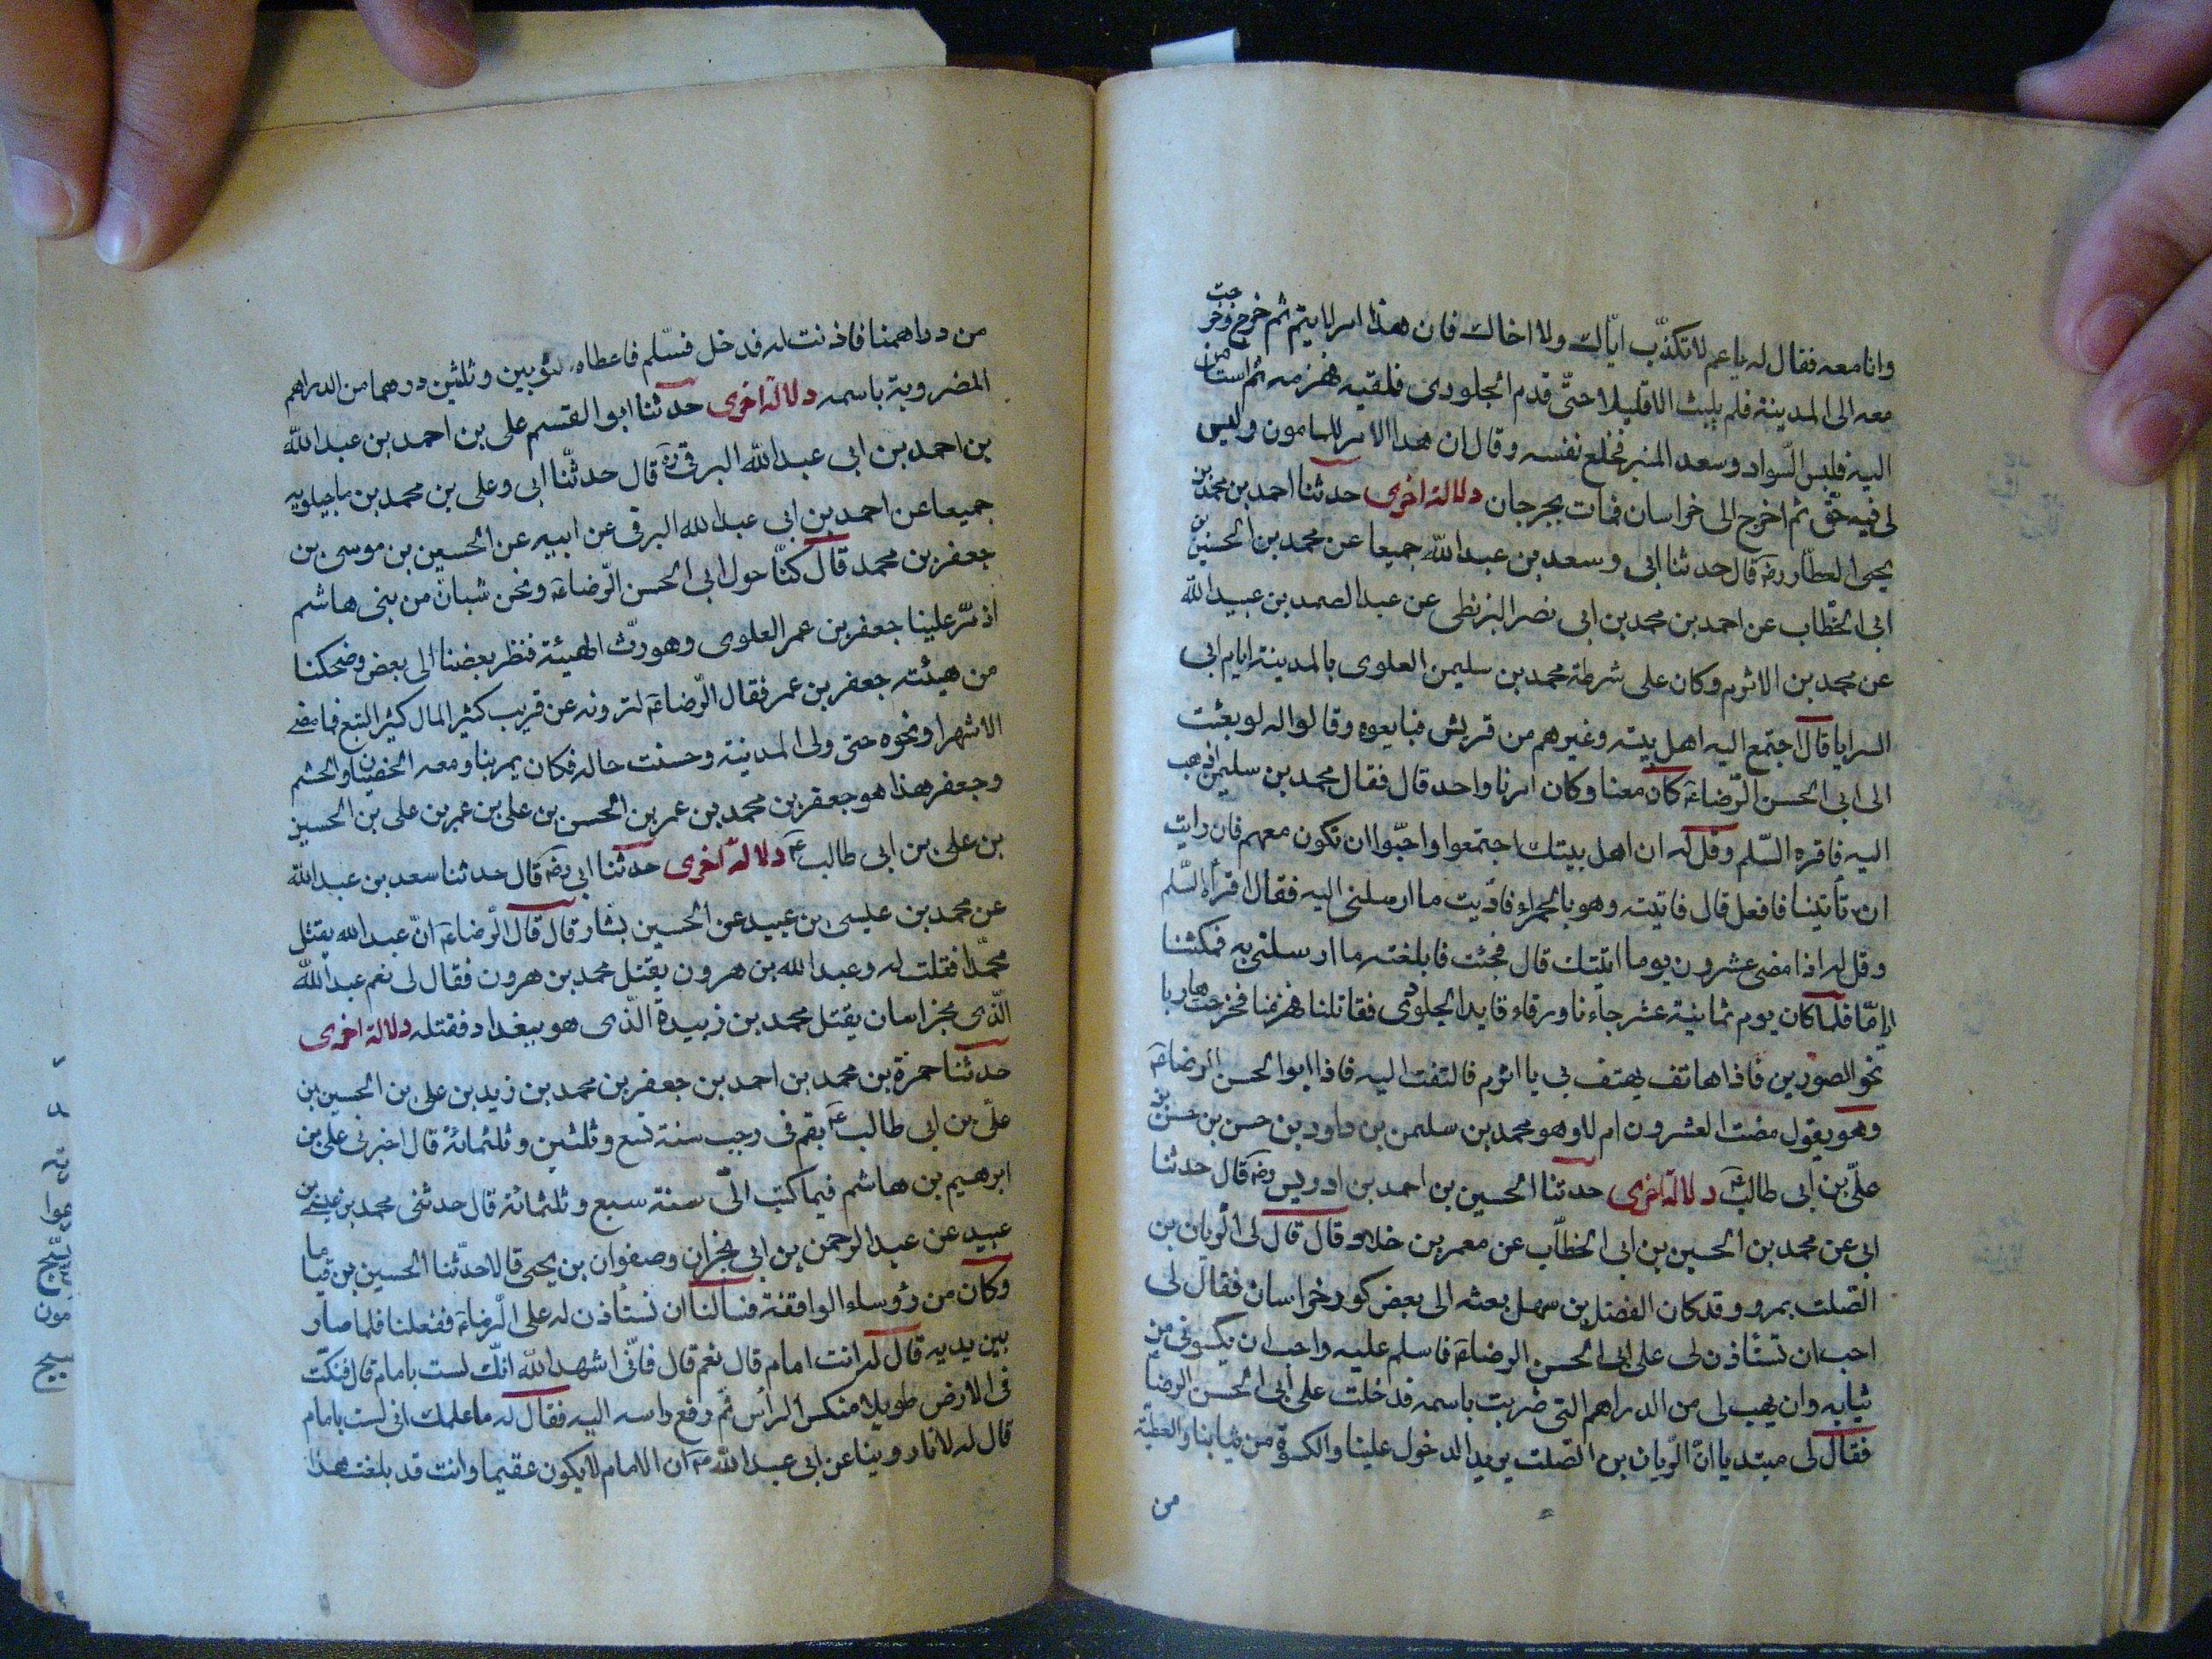 وانا معه فقال له يا عم لا تكذّب اباك ولا اخاك فان هذا امر لا يتم ثم خرج وخرجت
معه الى المدينة فلم يلبث الا قليلا حتّى قدم الجلودى فلقيه فهزمه ثم استامن
اليه فلبس السّواد وسعد المنبر فخلع نفسه وقال ان هذا الامر للمامون وليس
لى فيه حقّ ثم اخرج الى خراسان فمات بجرجان دلالة اخرى حدثنا احمد بن محمد بن
يحيى العطّار رضه قال حدثنا ابى وسعد بن عبد الله جميعا عن محمد بن الحسين بن
ابى الخطّاب عن احمد بن محمد بن ابى نصر البزنطى عن عبد الصمد بن عبيد الله
عن محمد بن الاثرم وكان على شرطة محمد بن سليمن العلوى بالمدينة ايام ابى
السرايا قال اجتمع اليه اهل بيته وغيرهم من قريش فبايعوه وقالوا له لو بعثت
الى ابى الحسن الرّضاعَ كان معنا وكان امرنا واحد قال فقال محمد بن سليمن اذهب
اليه فاقره السّلم وقل له ان اهل بيتك اجتمعوا واحبّوا ان تكون معهم فان رايت
ان تأتينا فافعل قال فاتيته وهو بالحمراء فاديت ما ارسلنى اليه فقال اقرأه السّلم
وقل له اذا مضى عشرون يوما اتيتك قال فجئت فابلغته ما ارسلنى به فمكثنا
ايّاما فلما كان يوم ثمانية عشر جاءنا ورقاء قايد الجلودى فقاتلنا فهزمنا فخرجت هاربا
نحو الصورين فاذا هاتف يهتف بى يا اثرم فالتفت اليه فاذا ابو الحسن الرضاعَ
وهو يقول مضت العشرون ام لا وهو محمد بن سليمن بن داود بن حسن بن حسن بن
علّى بن ابى طالب عَ دلالة اخرى حدثنا الحسين بن احمد بن ادريس رضه قال حدثنا
ابى عن محمد بن الحسين بن ابى الخطّاب عن معمر بن خلاد قال قال لى الرّيان بن
الصّلت بمرو وقد كان الفضل بن سهل بعثه الى بعض كور خراسان فقال لى
احب ان تستأذن لى على ابى الحسن الرضاعَ فاسلم عليه واحب ان يكسونى من
ثيابه وان يهب لى من الدراهم التى ضربت باسمه فدخلت على أبى الحسن الرضا
فقال لى مبتديا انّ الرّيان بن الصّلت يريد الدخول علينا والكسوة من ثيابنا والعطيّة
من
من دراهمنا فاذنت له فدخل فسّلم فاعطاه ثوبين وثلثين درهما من الدراهم
المضروبة باسمه دلالة اخرى حدثنا ابو القسم على بن احمد بن عبد الله
بن احمد بن ابى عبد الله البرقى ره قال حدثّنا ابى وعلى بن محمد بن ماجيلويه
جميعا عن احمد بن ابى عبد الله البرقى عن ابيه عن الحسين بن موسى بن
جعفر بن محمد قال كنّا حول ابى الحسن الرّضاعَ ونحن شبان من بنى هاشم
اذ مرّ علينا جعفر بن عمر العلوى وهو رثّ الهيئة فنظر بعضنا الى بعض وضحكنا
من هيئته جعفر بن عمر فقال الرّضاعَ لترونه عن قريب كثير المال كثير التبع فما مضى
الا شهر او نحوه حتى ولى المدينة وحسنت حاله فكان يمر بنا ومعه الخصيان والحشم
وجعفر هذا هو جعفر بن محمد بن عمر بن الحسن بن على بن عمر بن على بن الحسين
بن على بن ابى طالب عَ دلالة اخرى حدثنا ابى رضه قال حدثنا سعد بن عبد الله
عن محمد بن عيسى بن عبيد عن الحسين بشار قال قال الرّضاعَ انّ عبد الله يقتل
محمّدا فقلت له وعبد الله بن هرون يقتل محمد بن هرون فقال لى نعم عبد الله
الّذى بخراسان يقتل محمد بن زبيدة الّذى هو ببغداد فقتله دلالة اخرى
حدثنا حمزة بن محمد بن احمد بن جعفر بن محمد بن زيد بن على بن الحسين بن
علّى بن ابى طالب عَ بقم فى رجب سنة تسع وثلثين وثلثمائة قال اخبرنى على بن
ابرهيم بن هاشم فيما كتب الّى سنة سبع وثلثمائة قال حدثنى محمد بن عيسى بن
عبيد عن عبد الرحمن بن ابى نجران وصفوان بن يحيى قالا حدّثنا الحسين بن قياما
وكان من رؤساء الواقفة فسألنا ان نستأذن له على الرضاعَ ففعلنا فلما صار
بين يديه قال له انت امام قال نعم قال فانّى اشهد الله انّك لست بامام قال فنكت
فى الارض طويلا منكس الرأس ثم رفع راسه اليه فقال له ما علمك انى لست بامام
قال له لأنا روينا عن ابى عبد الله عَ ان الامام لا يكون عقيما وانت قد بلغت هذا